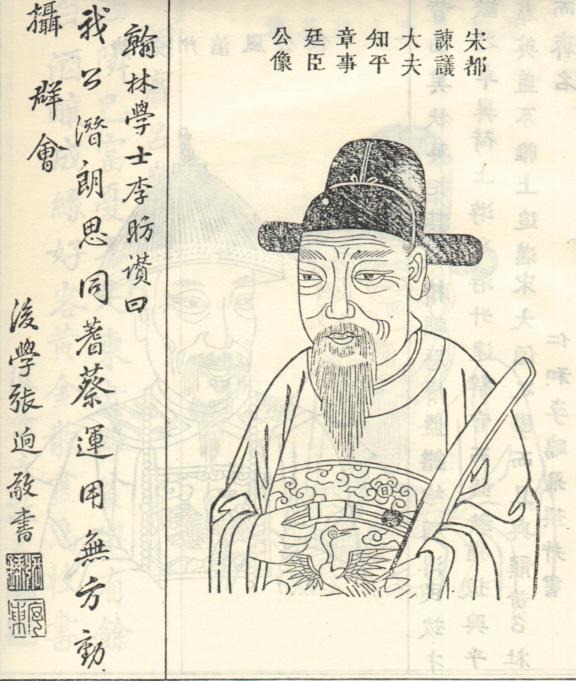 宋都
諫議
大夫
知平
章事
廷臣
公像
翰林學士李昉讚曰
我公潛朗思同蓍蔡運用無方動
攝群會
後學張逈敬書